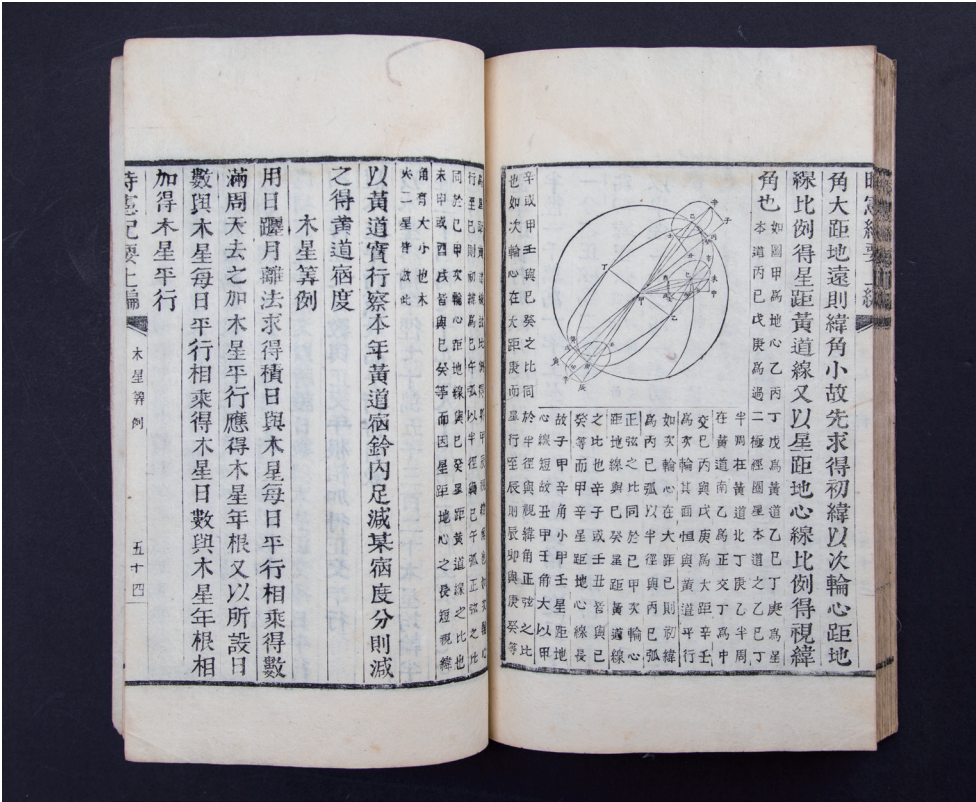 時憲紀要上編
角大距地遠則緯角小故先求得初緯以次輪心距地
線比例得星距黃道線又以星距地心線比例得視緯
角也
如圖甲爲地心乙丙丁戊爲黃道乙己丁庚爲星
本道丙己戊庚爲過二極經圈星本道之乙己丁
半周在黃道北丁庚乙半周
在黃道南乙爲正交丁爲中
交己丙與戊庚爲大距辛壬
爲次輪其面恒與黃道平行
如次輪心在大距己則初緯
爲丙己弧以半徑與丙己弧
正弦之比同於己甲次輪心
距地線與己癸星距黃道線
之比也辛子或壬丑皆與己
癸等而甲辛星距地心線長
故子甲辛角小甲壬星距地
心線短故丑甲壬角大以甲
辛或甲壬與己癸之比同於半徑與視緯角正弦之比
也如次輪心在大距庚而星行至辰則辰卯與庚癸等
同於己甲次輪心距地線與己癸星距黃道線之比也
未甲或酉皆與己癸等而因星距地心之長短視緯
角有大小也木
火二星皆倣此
以黃道實行察本年黃道宿鈐內足減某宿度分則減
之得黃道宿度
木星筭例
用日躔月離法求得積日與木星每日平行相乘得數
滿周天去之加木星平行應得木星年根又以所設日
數與木星每日平行相乘得木星日數與木星年根相
加得木星平行
時憲紀要上編
木星筭例
五十四